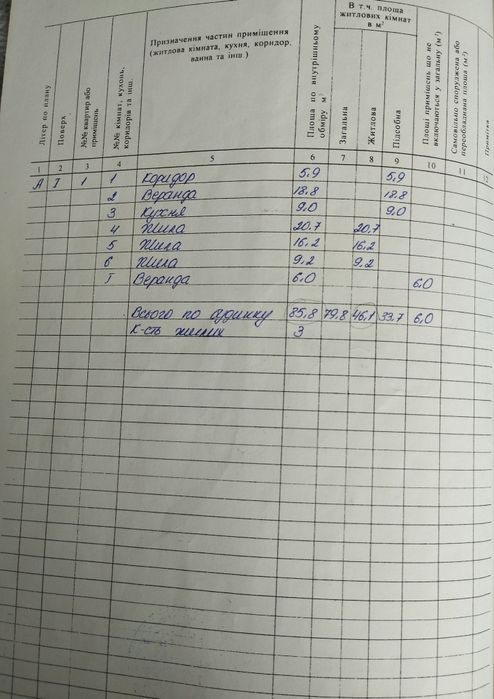 Літер по плану
Поверх
№№ квартир або приміщень
№№ кімнат, кухонь, коридорів та інш.
Призначення частин приміщення
(житлова кімната, кухня, коридор,
ванна та інш.)
Площа по внутрішньому обміру м²
В т.ч. площа
житлових кімнат
в м²
Загальна
Житлова
Підсобна
Площі приміщень що не включаються у загальну (м²)
Самовільно споруджена або переобладнана площа (м²)
Примітки
1 2 3 4 5 6 7 8 9 10 11 12
А І 1 1 Коридор 5,9 5,9
2 Веранда 18,8 18,8
3 Кухня 9,0 9,0
4 Жила 20,7 20,7
5 Жила 16,2 16,2
6 Жила 9,2 9,2
І Веранда 6,0 6,0
Всього по будинку 85,8 79,8 46,1 33,7 6,0
К-сть жилих 3